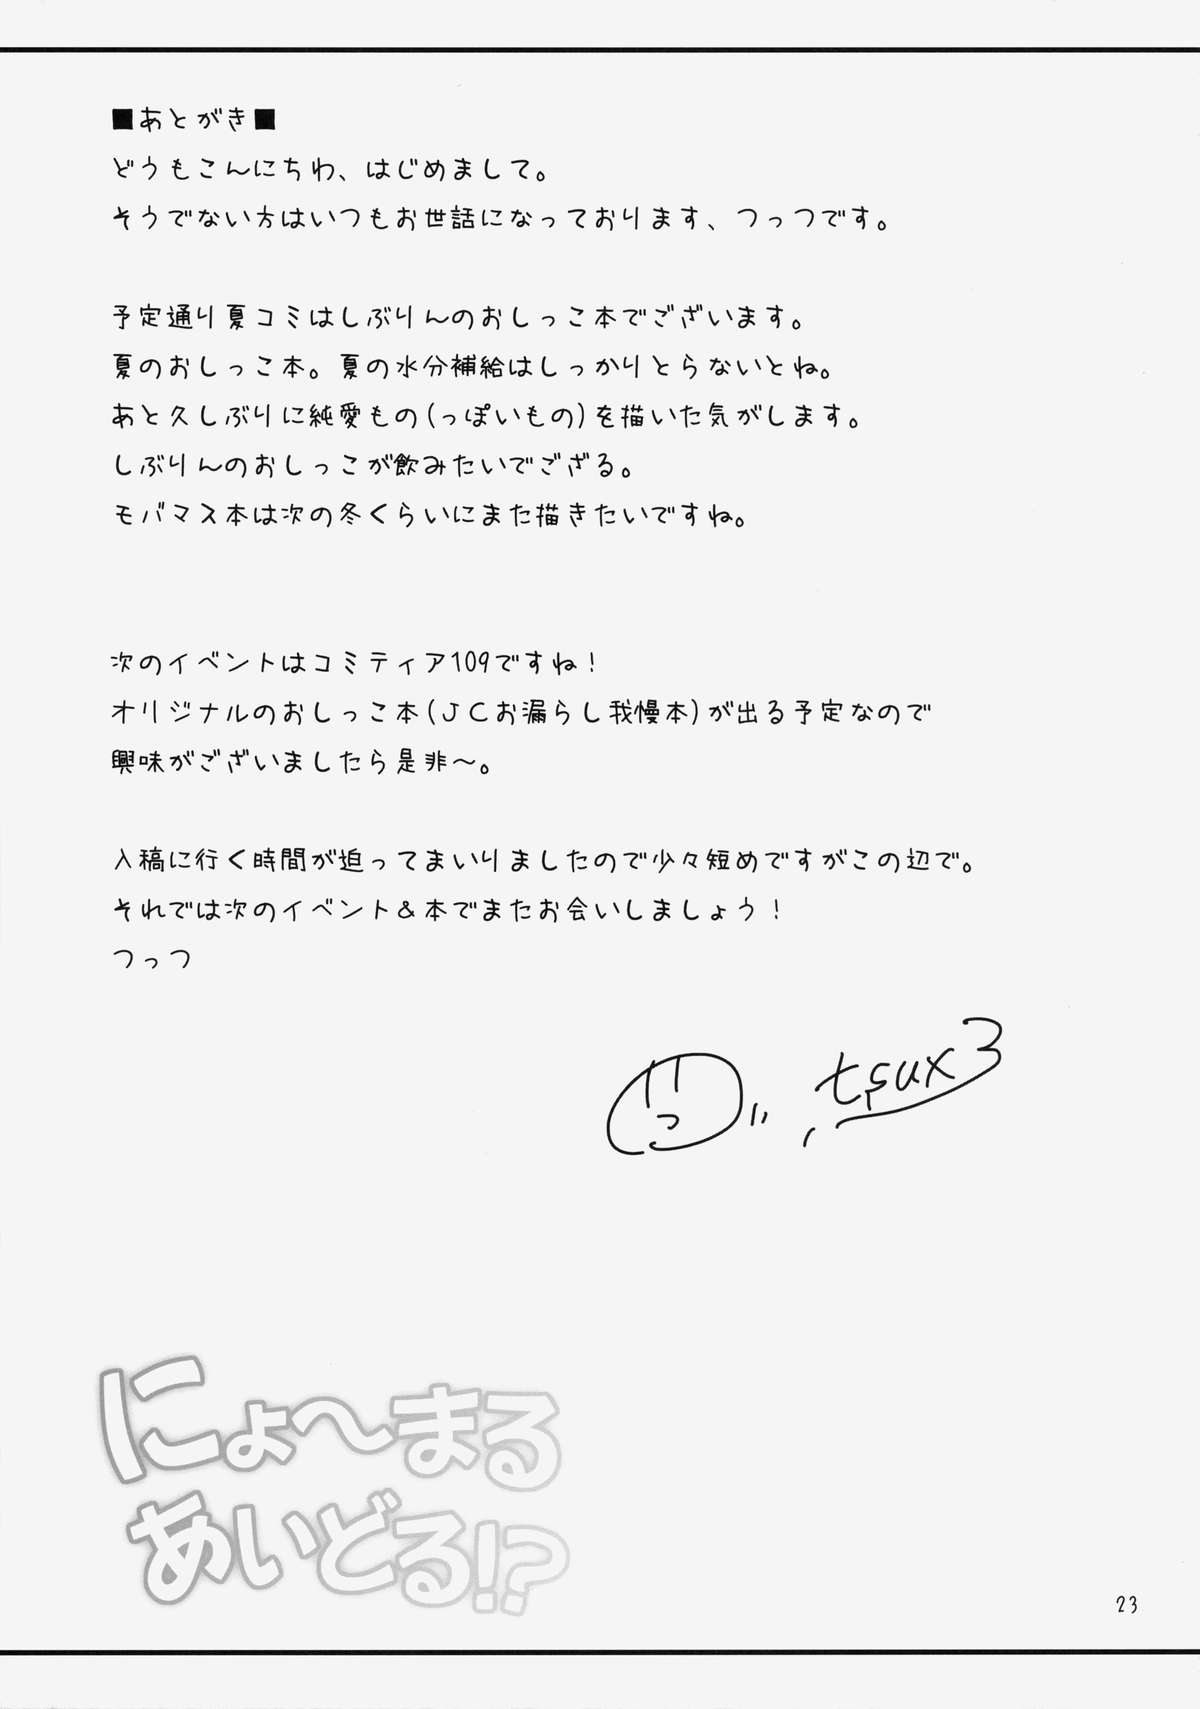 ■あとがき■
どうもこんにちわ、はじめまして。
そうでない方はいつもお世話になっております、つっつです。
予定通り夏コミはしぶりんのおしっこ本でございます。
夏のおしっこ本。夏の水分補給はしっかりとらないとね。
あと久しぶりに純愛もの(っぽいもの)を描いた気がします。
しぶりんのおしっこが飲みたいでござる。
モバマス本は次の冬くらいにまた描きたいですね。
次のイベントはコミティア109ですね!
オリジナルのおしっこ本(JCお漏らし我慢本)が出る予定なので
興味がございましたら是非~。
入稿に行く時間が迫ってまいりましたので少々短めですがこの辺で。
それでは次のイベント&本でまたお会いしましょう!
つっつ
tsux3
にょ~まる
あいどる!?
23